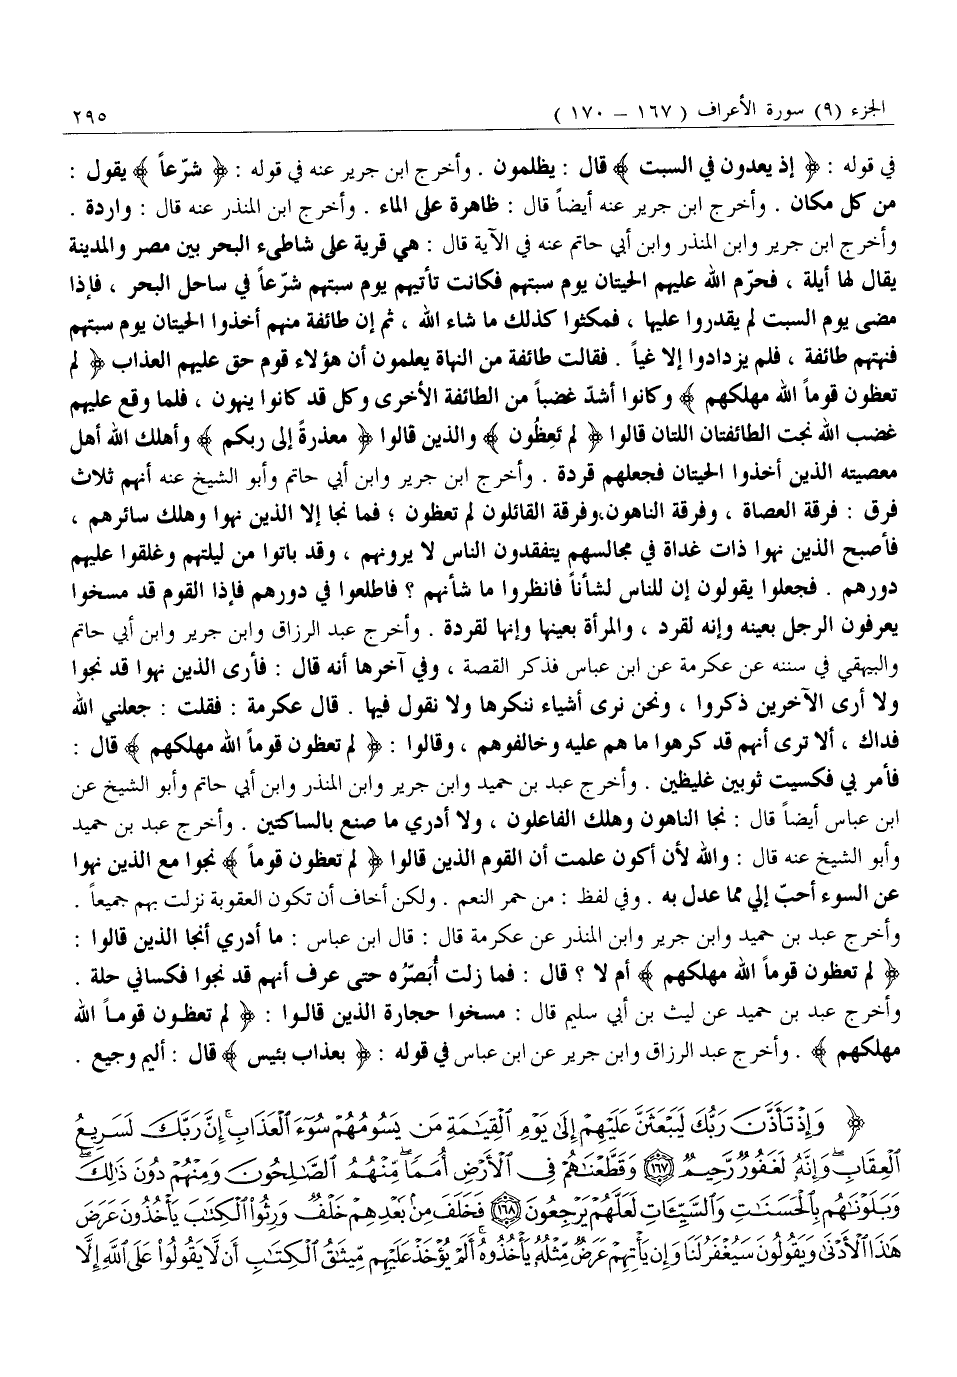 الجزء (٩) سورة الأعراف ( ١٦٧ – ١٧٠ ) ٢٩٥
في قوله : ﴿ إذ يعدون في السبت ﴾ قال : يظلمون . وأخرج ابن جرير عنه في قوله : ﴿ شرّعاً ﴾ يقول :
من كل مكان . وأخرج ابن جرير عنه أيضاً قال : ظاهرة على الماء . وأخرج ابن المنذر عنه قال : واردة .
وأخرج ابن جرير وابن المنذر وابن أبي حاتم عنه في الآية قال : هي قرية على شاطىء البحر بين مصر والمدينة
يقال لها أيلة ، فحرّم الله عليهم الحيتان يوم سبتهم فكانت تأتيهم يوم سبتهم شرّعاً في ساحل البحر ، فإذا
مضى يوم السبت لم يقدروا عليها ، فمكثوا كذلك ما شاء الله ، ثم إن طائفة منهم أخذوا الحيتان يوم سبتهم
فنهتهم طائفة ، فلم يزدادوا إلا غياً . فقالت طائفة من النهاة يعلمون أن هؤلاء قوم حق عليهم العذاب ﴿ لم
تعظون قوماً الله مهلكهم ﴾ وكانوا أشدّ غضباً من الطائفة الأخرى وكل قد كانوا ينهون ، فلما وقع عليهم
غضب الله نجت الطائفتان اللتان قالوا ﴿ لم تَعِظُون ﴾ والذين قالوا ﴿ معذرةً إلى ربكم ﴾ وأهلك الله أهل
معصيته الذين أخذوا الحيتان فجعلهم قردة . وأخرج ابن جرير وابن أبي حاتم وأبو الشيخ عنه أنهم ثلاث
فرق : فرقة العصاة ، وفرقة الناهون، وفرقة القائلون لم تعظون ؛ فما نجا إلا الذين نهوا وهلك سائرهم ،
فأصبح الذين نهوا ذات غداة في مجالسهم يتفقدون الناس لا يرونهم ، وقد باتوا من ليلتهم وغلقوا عليهم
دورهم . فجعلوا يقولون إن للناس لشأناً فانظروا ما شأنهم ؟ فاطلعوا في دورهم فإذا القوم قد مسخوا
يعرفون الرجل بعينه وإنه لقرد ، والمرأة بعينها وإنها لقردة . وأخرج عبد الرزاق وابن جرير وابن أبي حاتم
والبيهقي في سننه عن عكرمة عن ابن عباس فذكر القصة ، وفي آخرها أنه قال : فأرى الذين نهوا قد نجوا
ولا أرى الآخرين ذكروا ، ونحن نرى أشياء ننكرها ولا نقول فيها . قال عكرمة : فقلت : جعلني الله
فداك ، ألا ترى أنهم قد كرهوا ما هم عليه وخالفوهم ، وقالوا : ﴿ لم تعظون قوماً الله مهلكهم ﴾ قال :
فأمر بي فكسيت ثوبين غليظين . وأخرج عبد بن حميد وابن جرير وابن المنذر وابن أبي حاتم وأبو الشيخ عن
ابن عباس أيضاً قال : نجا الناهون وهلك الفاعلون ، ولا أدري ما صنع بالساكتين . وأخرج عبد بن حميد
وأبو الشيخ عنه قال : والله لأن أكون علمت أن القوم الذين قالوا ﴿ لم تعظون قوماً ﴾ نجوا مع الذين نهوا
عن السوء أحبّ إلي مما عدل به . وفي لفظ : من حمر النعم . ولكن أخاف أن تكون العقوبة نزلت بهم جميعاً .
وأخرج عبد بن حميد وابن جرير وابن المنذر عن عكرمة قال : قال ابن عباس : ما أدري أنجا الذين قالوا :
﴿ لم تعظون قوماً الله مهلكهم ﴾ أم لا ؟ قال : فما زلت أُبَصّرُه حتى عرف أنهم قد نجوا فكساني حلة .
وأخرج عبد بن حميد عن ليث بن أبي سليم قال : مسخوا حجارة الذين قالوا : ﴿ لم تعظون قوماً الله
مهلكهم ﴾ . وأخرج عبد الرزاق وابن جرير عن ابن عباس في قوله : ﴿ بعذاب بئيس ﴾ قال : أليم وجيع .
﴿ وَإِذْ تَأَذَّنَ رَبُّكَ لَيَبْعَثَنَّ عَلَيْهِمْ إِلَىٰ يَوْمِ ٱلْقِيَٰمَةِ مَن يَسُومُهُمْ سُوٓءَ ٱلْعَذَابِ ۗ إِنَّ رَبَّكَ لَسَرِيعُ
ٱلْعِقَابِ ۖ وَإِنَّهُۥ لَغَفُورٌ رَّحِيمٌ ١٦٧ وَقَطَّعْنَٰهُمْ فِى ٱلْأَرْضِ أُمَمًا ۖ مِّنْهُمُ ٱلصَّٰلِحُونَ وَمِنْهُمْ دُونَ ذَٰلِكَ ۖ
وَبَلَوْنَٰهُم بِٱلْحَسَنَٰتِ وَٱلسَّيِّـَٔاتِ لَعَلَّهُمْ يَرْجِعُونَ ١٦٨ فَخَلَفَ مِنۢ بَعْدِهِمْ خَلْفٌ وَرِثُوا۟ ٱلْكِتَٰبَ يَأْخُذُونَ عَرَضَ
هَٰذَا ٱلْأَدْنَىٰ وَيَقُولُونَ سَيُغْفَرُ لَنَا وَإِن يَأْتِهِمْ عَرَضٌ مِّثْلُهُۥ يَأْخُذُوهُ ۚ أَلَمْ يُؤْخَذْ عَلَيْهِم مِّيثَٰقُ ٱلْكِتَٰبِ أَن لَّا يَقُولُوا۟ عَلَى ٱللَّهِ إِلَّا